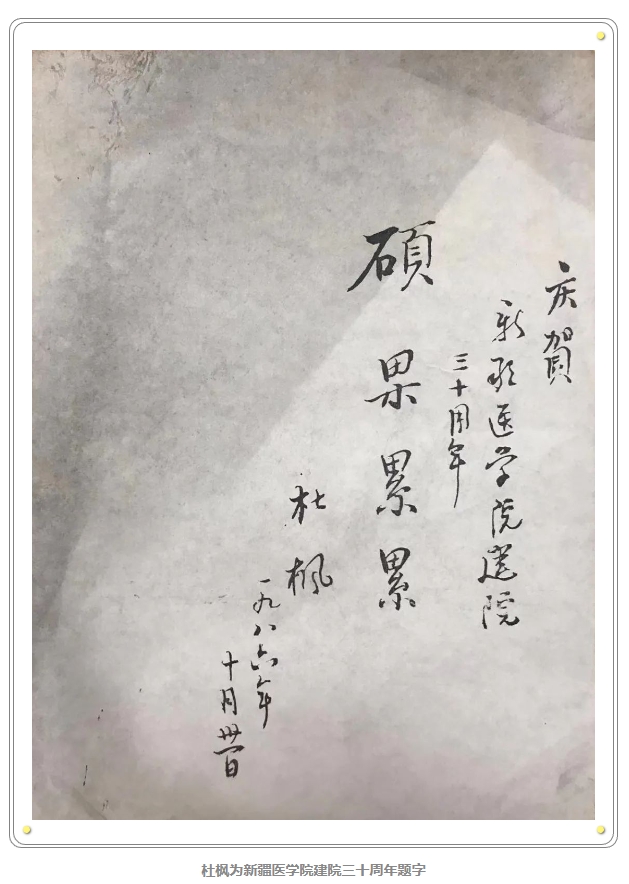 庆賀
新疆医学院建院
三十周年
碩果累累
杜楓
一九八六年
十月卅一日
杜枫为新疆医学院建院三十周年题字